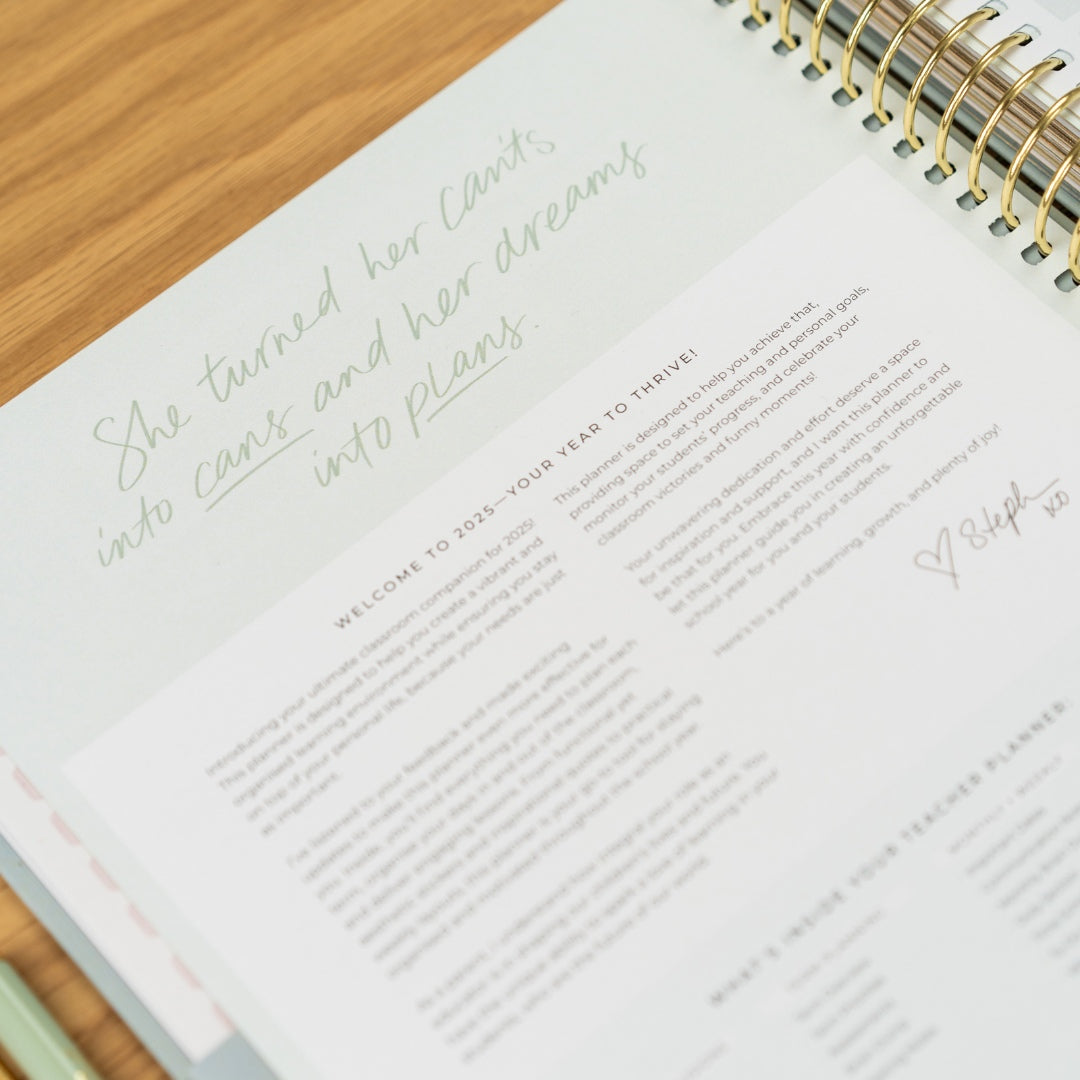 She turned her can'ts
into cans and her dreams
into plans.
WELCOME TO 2025—YOUR YEAR TO THRIVE!
Introducing your ultimate classroom companion for 2025!
This planner is designed to help you create a vibrant and
organised learning environment while ensuring you stay
on top of your personal life, because your needs are just
as important.
I've listened to your feedback and made exciting
updates to make this planner even more effective for
you. Inside, you'll find everything you need to plan each
term, organise your days in and out of the classroom,
and deliver engaging lessons. From functional yet
quotes to practical
this planner is your go-to tool for staying
organised and motivated throughout the school year.
As a parent, I understand how integral your role as an
educator is in shaping our children's lives and future. You
have the unique ability to spark a love of learning in your
students, who are the future of our world.
This planner is designed to help you achieve that,
providing space to set your teaching and personal goals,
monitor your students' progress, and celebrate your
classroom victories and funny moments!
Your unwavering dedication and effort deserve a space
for inspiration and support, and I want this planner to
be that for you. Embrace this year with confidence and
let this planner guide you in creating an unforgettable
school year for you and your students.
Here's to a year of learning, growth, and plenty of joy!
Steph
xo
WHAT'S INSIDE YOUR TEACHER PLANNER: